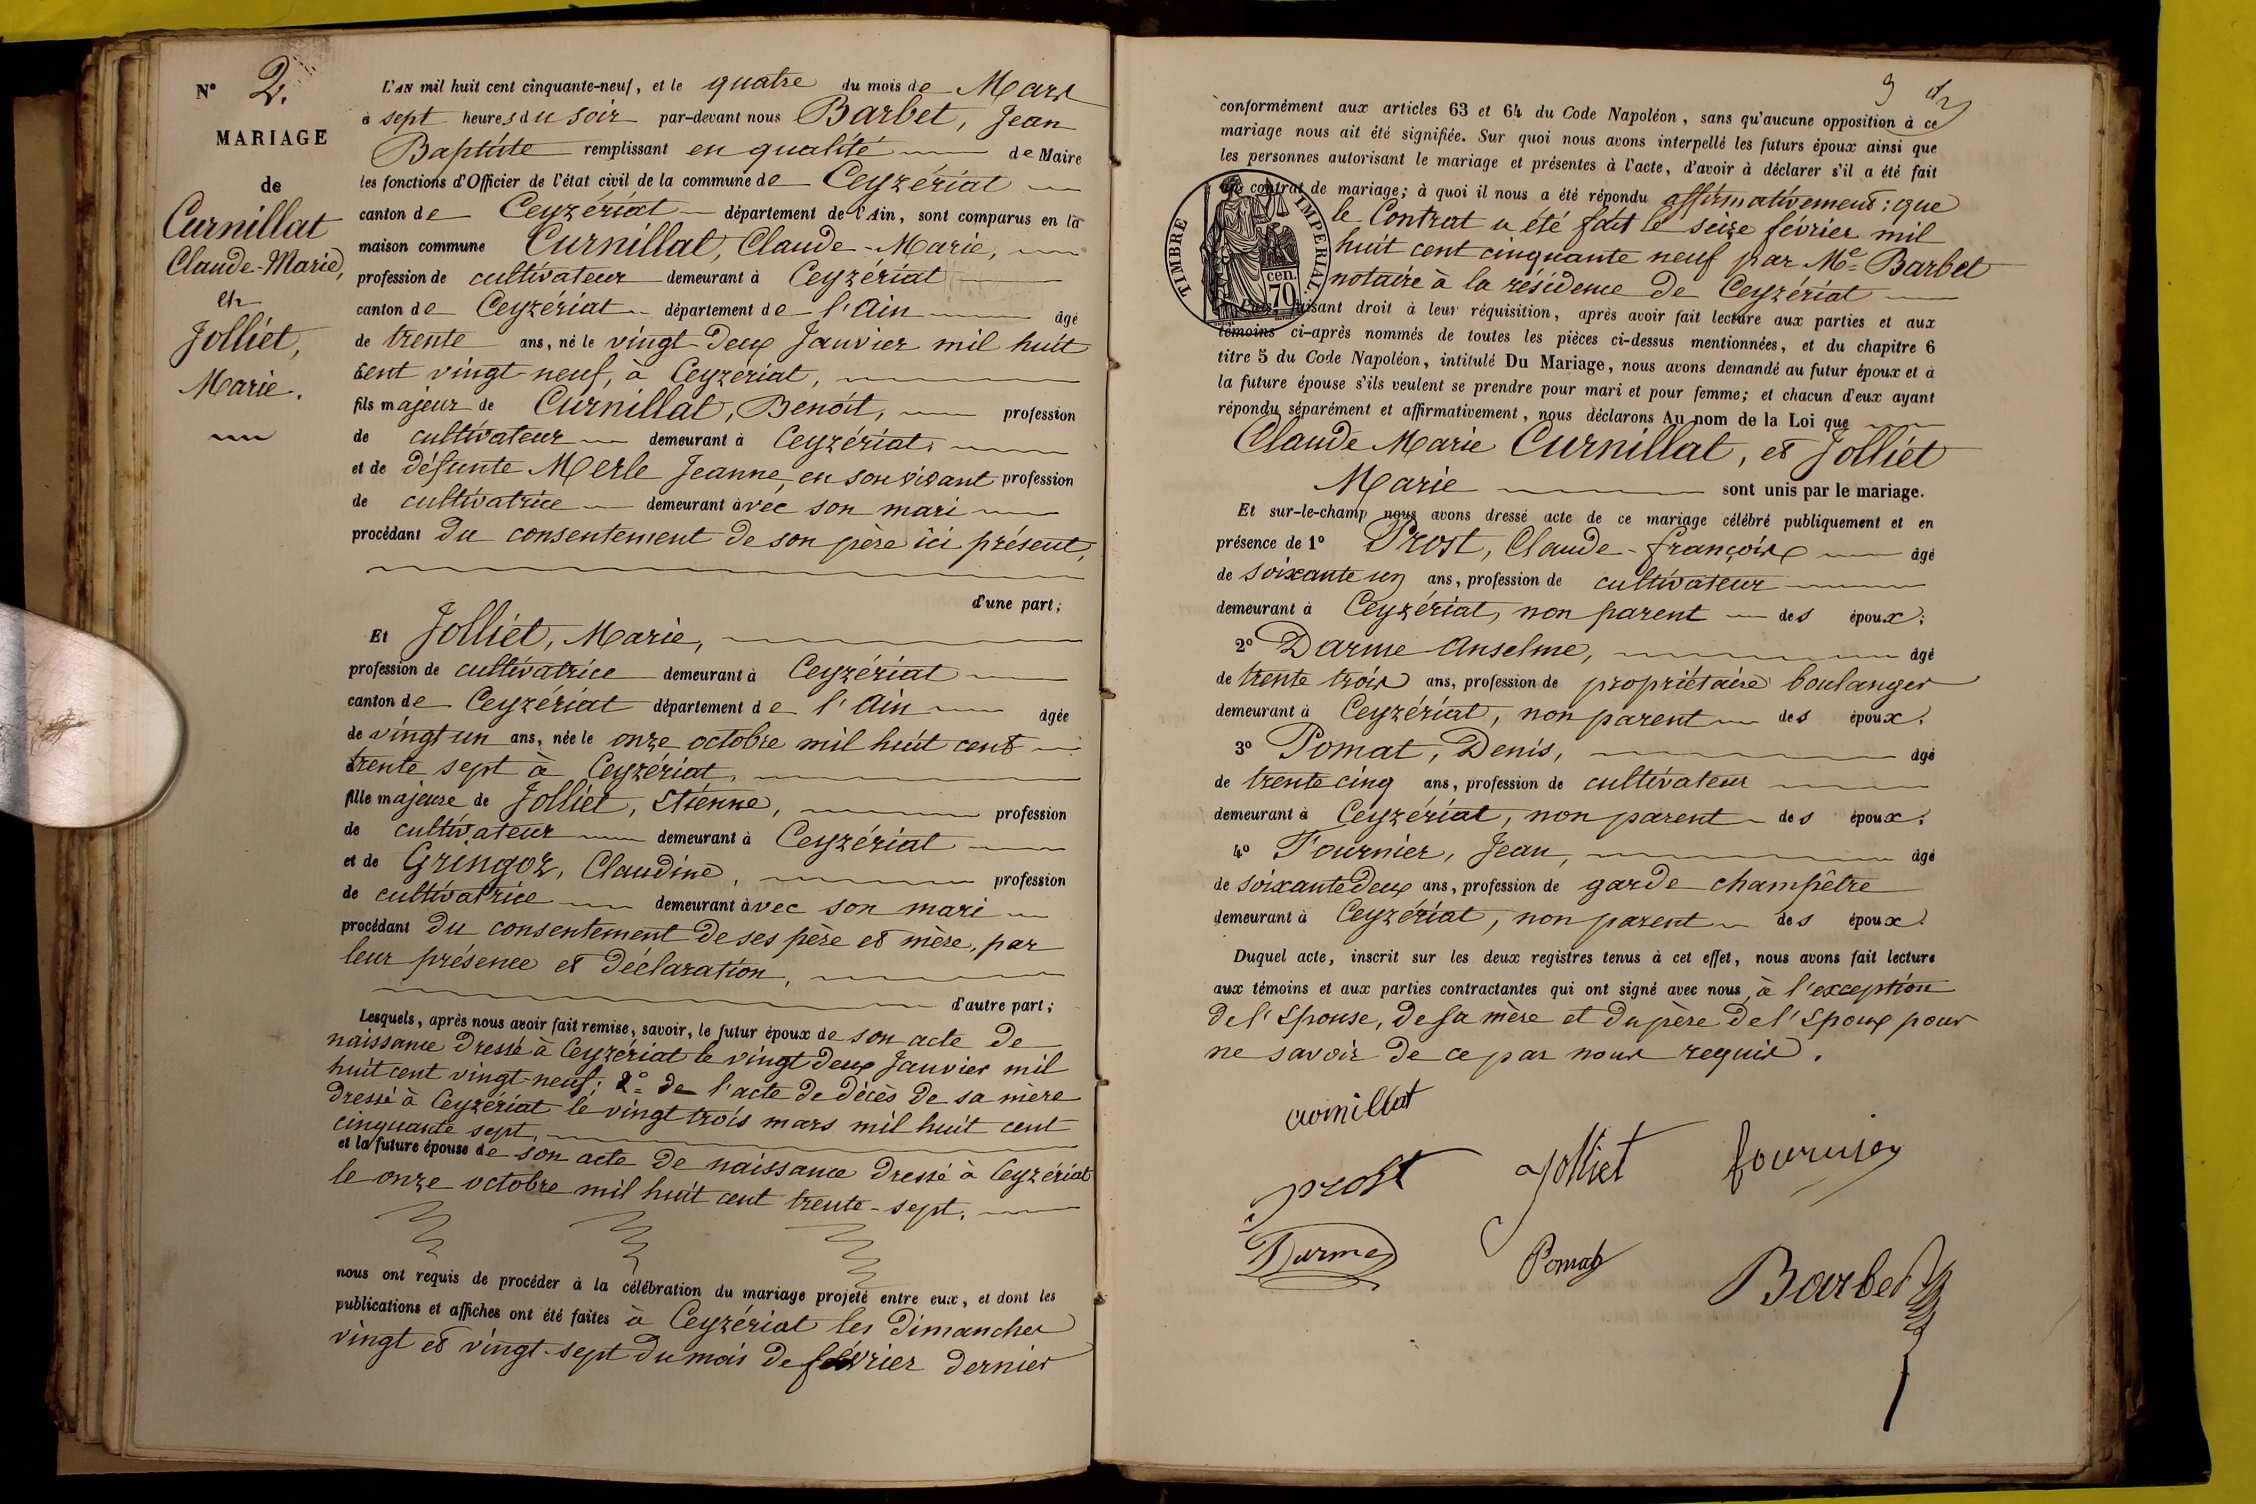 N° 2.
MARIAGE
de
Curnillat
Claude-Marie,
et
Jolliet,
Marie.
L'AN mil huit cent cinquante-neuf, et le quatre du mois de Mars
à sept heures du soir par-devant nous Barbet, Jean
Baptiste remplissant en qualité de Maire
les fonctions d'Officier de l'état civil de la commune de Ceyzériat
canton de Ceyzériat département de l'Ain, sont comparus en la
maison commune Curnillat, Claude-Marie,
profession de cultivateur demeurant à Ceyzériat
canton de Ceyzériat département de l'Ain âgé
de trente ans, né le vingt-deux Janvier mil huit
cent vingt-neuf, à Ceyzériat,
fils majeur de Curnillat, Benoît, profession
de cultivateur demeurant à Ceyzériat,
et de défunte Merle Jeanne, en son vivant profession
de cultivatrice demeurant avec son mari
procédant du consentement de son père ici présent,
d'une part;
Et Jolliet, Marie,
profession de cultivatrice demeurant à Ceyzériat
canton de Ceyzériat département de l'Ain âgée
de vingt un ans, née le onze octobre mil huit cent
trente sept à Ceyzériat,
fille majeure de Jolliet, Etienne, profession
de cultivateur demeurant à Ceyzériat
et de Gringoz, Claudine, profession
de cultivatrice demeurant avec son mari
procédant du consentement de ses père et mère, par
leur présence et déclaration,
d'autre part;
Lesquels, après nous avoir fait remise, savoir, le futur époux de son acte de
naissance dressé à Ceyzériat le vingt deux Janvier mil
huit cent vingt-neuf; 2° de l'acte de décès de sa mère
dressé à Ceyzériat le vingt trois mars mil huit cent
cinquante sept,
et la future épouse de son acte de naissance dressé à Ceyzériat
le onze octobre mil huit cent trente-sept,
nous ont requis de procéder à la célébration du mariage projeté entre eux, et dont les
publications et affiches ont été faites à Ceyzériat les dimanches
vingt et vingt-sept du mois de février dernier
3
conformément aux articles 63 et 64 du Code Napoléon, sans qu'aucune opposition à ce
mariage nous ait été signifiée. Sur quoi nous avons interpellé les futurs époux ainsi que
les personnes autorisant le mariage et présentes à l'acte, d'avoir à déclarer s'il a été fait
un contrat de mariage; à quoi il nous a été répondu affirmativement: que
le Contrat a été fait le seize février mil
huit cent cinquante neuf par Me Barbet
notaire à la résidence de Ceyzériat
TIMBRE IMPÉRIAL.
cen.
70
faisant droit à leur réquisition, après avoir fait lecture aux parties et aux
témoins ci-après nommés de toutes les pièces ci-dessus mentionnées, et du chapitre 6
titre 5 du Code Napoléon, intitulé Du Mariage, nous avons demandé au futur époux et à
la future épouse s'ils veulent se prendre pour mari et pour femme; et chacun d'eux ayant
répondu séparément et affirmativement, nous déclarons Au nom de la Loi que
Claude Marie Curnillat, et Jolliet
Marie sont unis par le mariage.
Et sur-le-champ nous avons dressé acte de ce mariage célébré publiquement et en
présence de 1° Prost, Claude-françois âgé
de soixante un ans, profession de cultivateur
demeurant à Ceyzériat, non parent des époux;
2° Darme Anselme, âgé
de trente trois ans, profession de propriétaire boulanger
demeurant à Ceyzériat, non parent des époux.
3° Pomat, Denis, âgé
de trente cinq ans, profession de cultivateur
demeurant à Ceyzériat, non parent des époux.
4° Fournier, Jean, âgé
de soixante deux ans, profession de garde champêtre
demeurant à Ceyzériat, non parent des époux.
Duquel acte, inscrit sur les deux registres tenus à cet effet, nous avons fait lecture
aux témoins et aux parties contractantes qui ont signé avec nous, à l'exception
de l'Epouse, de sa mère et du père de l'Epoux pour
ne savoir de ce par nous requis.
Curnillat
Prost Jolliet fournier
Darme Pomat Barbet